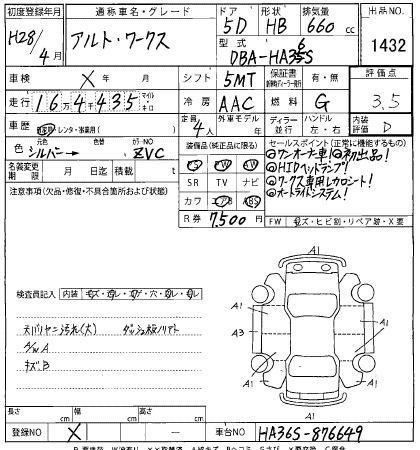 初度登録年月 通称車名・グレード ドア 形状 排気量 出品NO.
H28/4月 アルト・ワークス 5D HB 660cc 1432
型式 DBA-HA36S
車検 X 年 月 シフト 5MT 保証書 有・無 評価点
走行 164,435 マイル キロ 冷房 AAC 燃料 G 3.5
車歴 自家用・レンタ・事業用( ) 定員 4人 外車モデル 年 ディーラー 並行 ハンドル 左・右 内装評価 D
色 元色 シルバー 色替 カラーNO ZVC
装備品(純正品に限る) セールスポイント(正常に機能するもの)
名義変更期限 月 日迄 積載 t
PS PW AW
◎ワンオーナー車! ◎初出品!
◎HIDヘッドランプ!
◎ワークス専用レカロシート!
◎オートライトシステム!
SR TV ナビ
カワ エアB ABS
R券 7,500円
注意事項(欠品・修復・不具合箇所および状態)
FW キズ・ヒビ割・リペア跡・X要
検査員記入 内装 キズ・汚レ・コゲ・穴・切レ・ルレ
天バリヤニ汚れ(大) ダッシュ板ノリアト
A/W A
キズB
A1
A1 A1
A3 A1
A1 A1
A1
長さ cm 幅 cm 高さ cm
登録NO X — 車台NO HA36S-876649